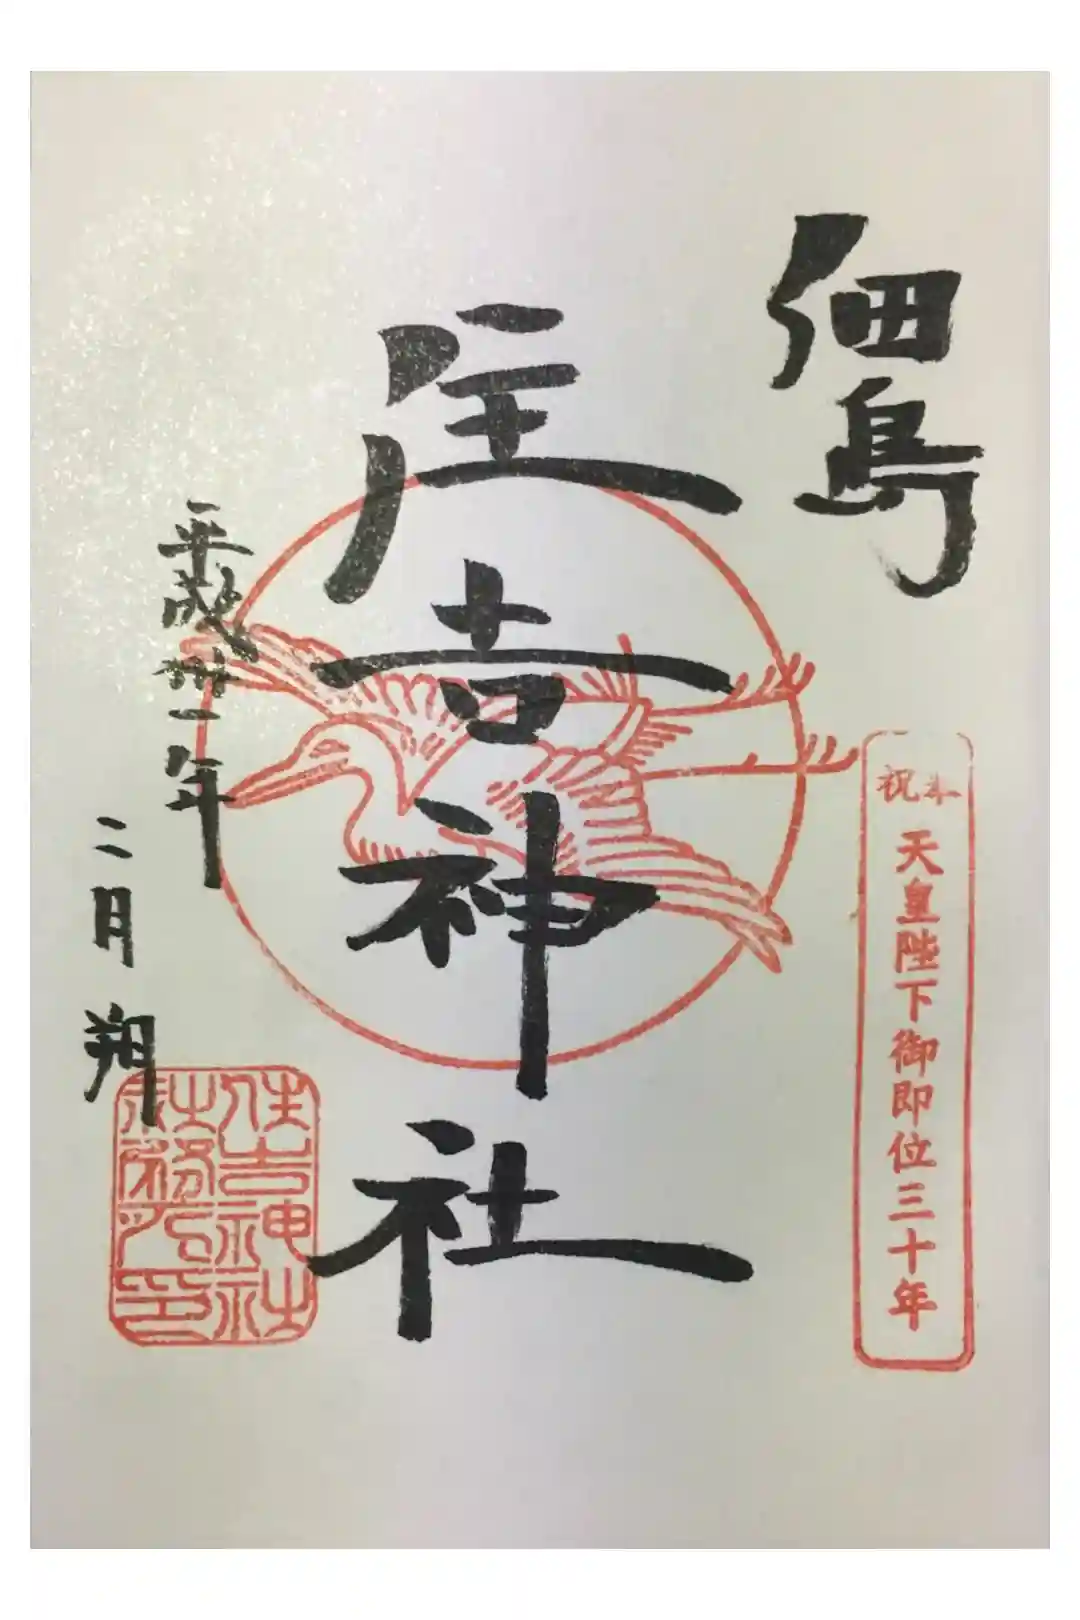 佃島
祝奉
天皇陛下御即位三十年
住吉神社
平成卅一年
二月朔
住吉神社
社務所印